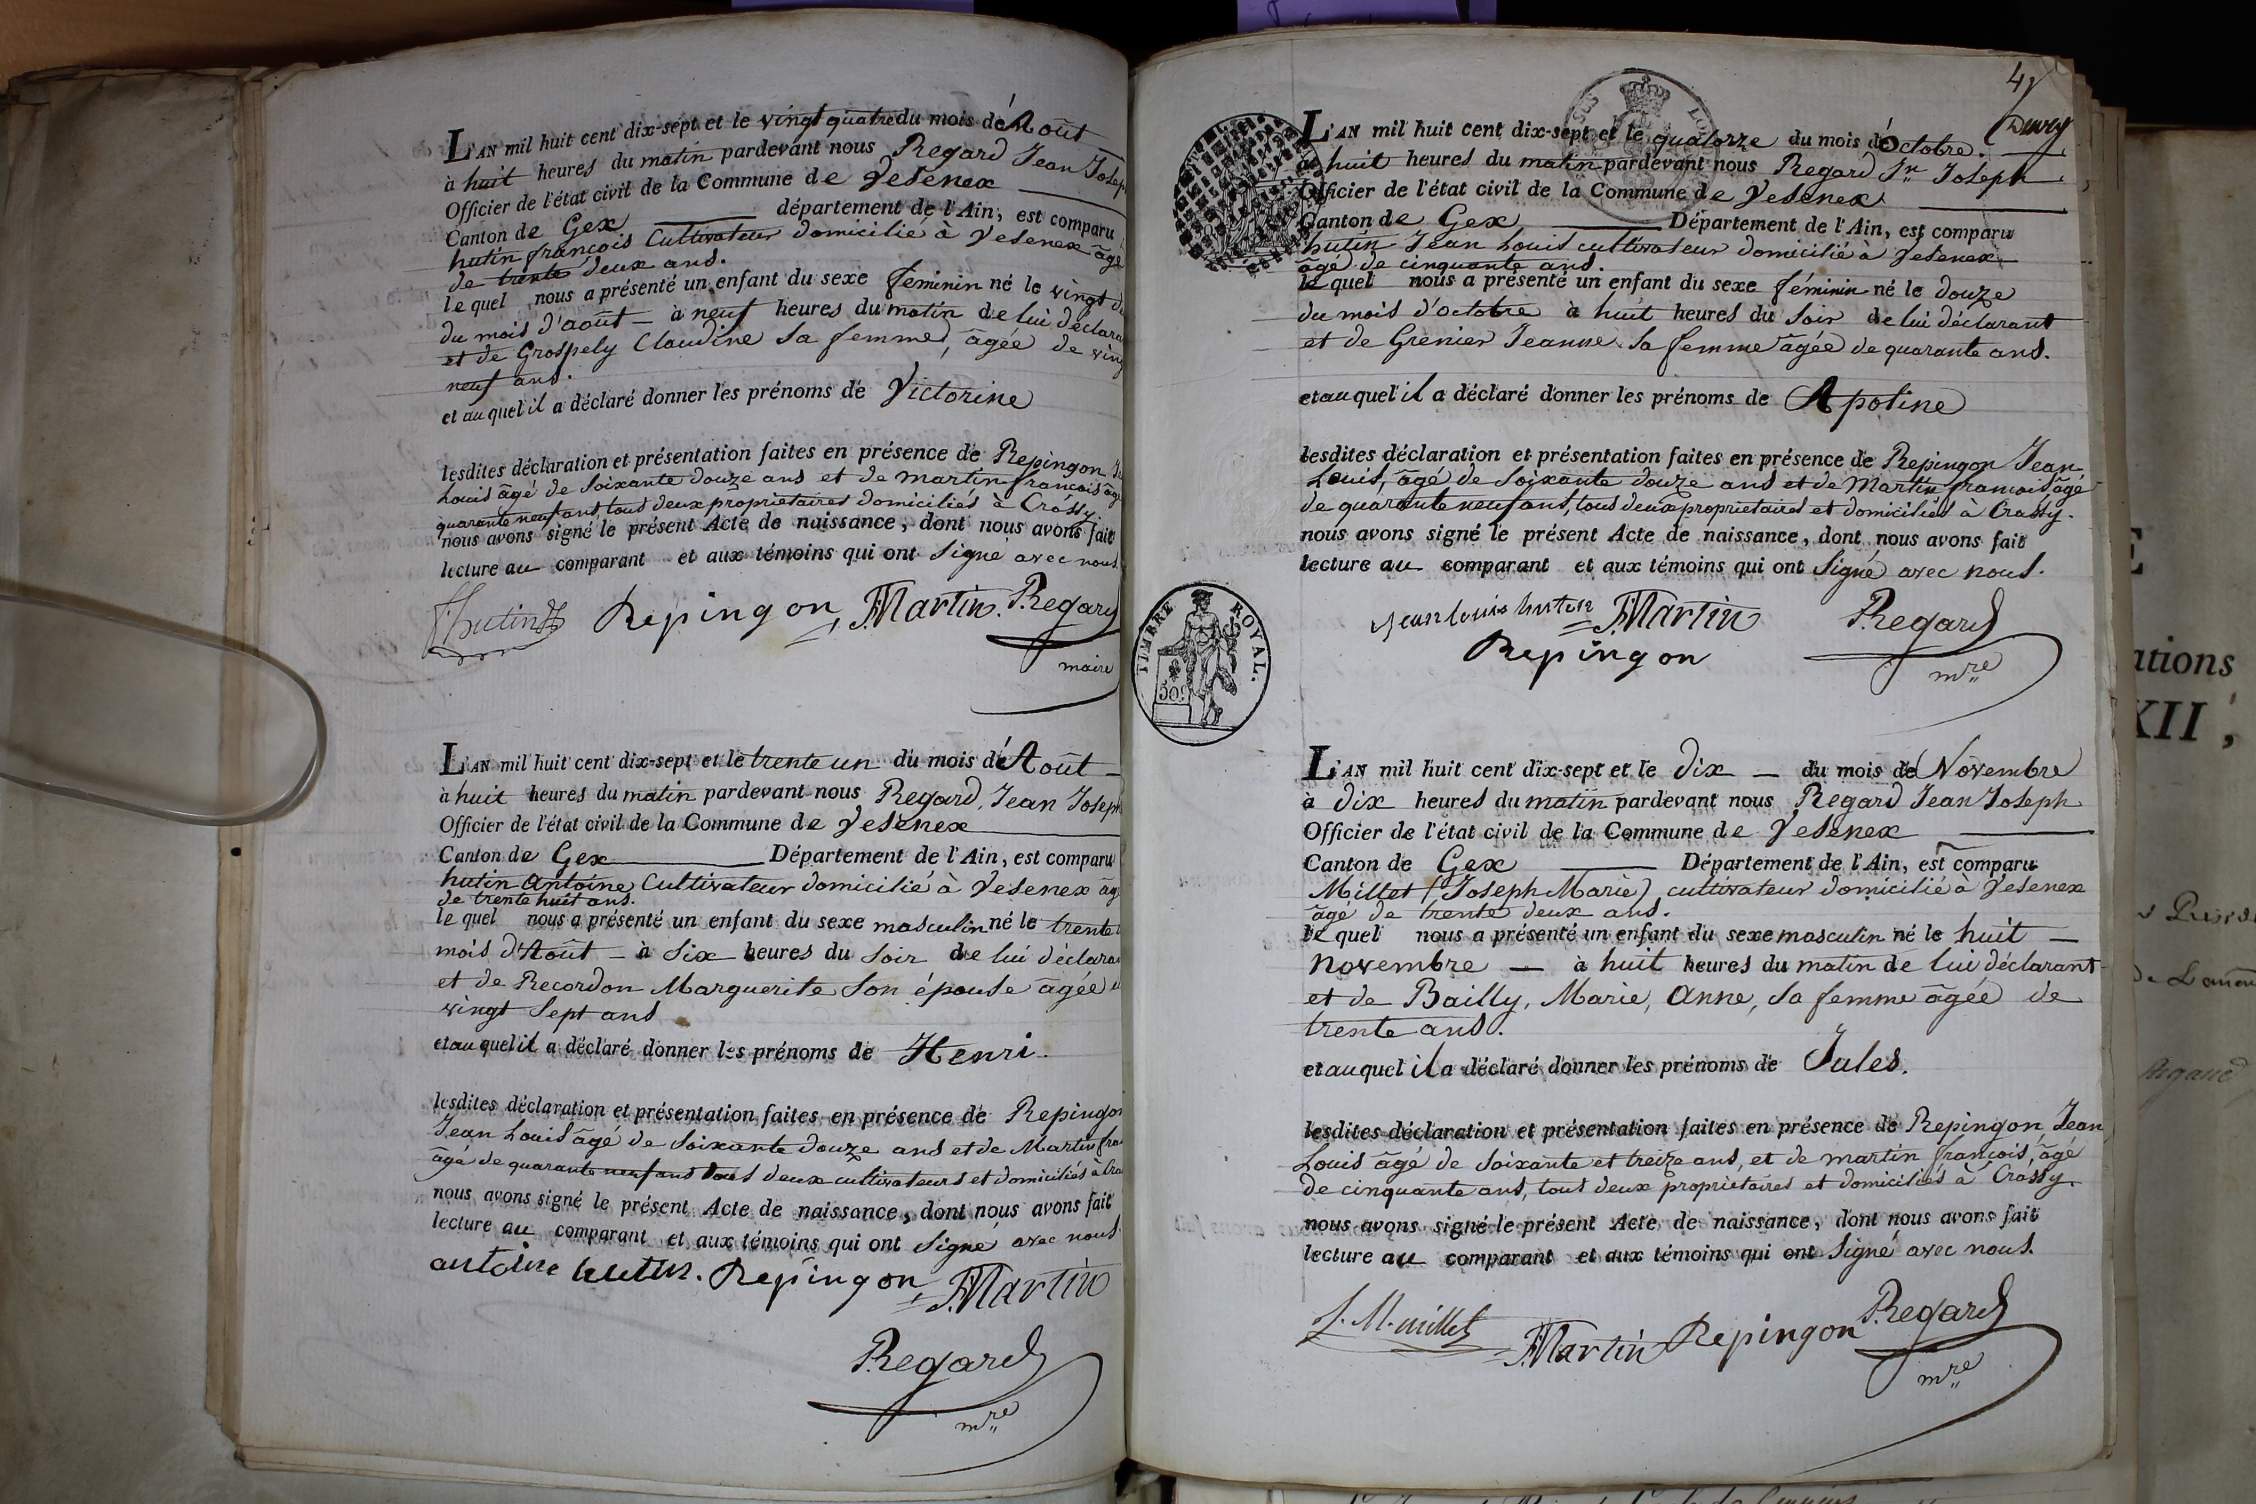 L'AN mil huit cent dix-sept et le vingt quatre du mois d'Août
à huit heures du matin pardevant nous Regard Jean Joseph
Officier de l'état civil de la Commune de Vesenex
Canton de Gex département de l'Ain, est comparu
hutin françois Cultivateur domicilié à Vesenex âgé
de trente deux ans.
le quel nous a présenté un enfant du sexe féminin né le vingt
du mois d'août à neuf heures du matin de lui déclara
et de Grospely Claudine sa femme, âgée de ving
neuf ans.
et au quel il a déclaré donner les prénoms de Victorine
lesdites déclaration et présentation faites en présence de Repingon
Louis âgé de soixante douze ans et de martin francois âgé
quarante neuf ans, tous deux propriétaires domiciliés à Crassy.
nous avons signé le présent Acte de naissance, dont nous avons fait
lecture au comparant et aux témoins qui ont signé avec nous
hutin Repingon J. Martin Regard
maire
L'AN mil huit cent dix-sept et le trente un du mois d'Août
à huit heures du matin pardevant nous Regard, Jean Joseph
Officier de l'état civil de la Commune de Vesenex
Canton de Gex Département de l'Ain, est comparu
hutin Antoine, Cultivateur domicilié à Vesenex âg
de trente huit ans.
le quel nous a présenté un enfant du sexe masculin né le trente
mois d'Août à six heures du soir de lui déclara
et de Recordon Marguerite son épouse âgée
vingt sept ans
et au quel il a déclaré donner les prénoms de Henri.
lesdites déclaration et présentation faites en présence de Repingon
Jean Louis âgé de soixante douze ans et de Martin fra
âgé de quarante neuf ans tous deux cultivateurs et domiciliés à Cra
nous avons signé le présent Acte de naissance, dont nous avons fait
lecture au comparant et aux témoins qui ont signé avec nous
antoine hutin. Repingon J. Martin
Regard
mre
4
L'AN mil huit cent dix-sept et le quatorze du mois d'Octobre.
à huit heures du matin pardevant nous Regard Jn Joseph
Officier de l'état civil de la Commune de Vesenex
Canton de Gex Département de l'Ain, est comparu
hutin Jean Louis cultivateur domicilié à Vesenex
âgé de cinquante ans.
le quel nous a présenté un enfant du sexe féminin né le douze
du mois d'octobre à huit heures du soir de lui déclarant
et de Grenier Jeanne sa femme âgée de quarante ans.
et au quel il a déclaré donner les prénoms de Apoline
lesdites déclaration et présentation faites en présence de Repingon Jean
Louis, âgé de soixante douze ans et de Martin francois âgé
de quarante neuf ans, tous deux propriétaires et domiciliés à Crassy.
nous avons signé le présent Acte de naissance, dont nous avons fait
lecture au comparant et aux témoins qui ont signé avec nous.
Jean louis hutin J. Martin Regard
Repingon mre
TIMBRE ROYAL.
50c
L'AN mil huit cent dix-sept et le dix du mois de Novembre
à dix heures du matin pardevant nous Regard Jean Joseph
Officier de l'état civil de la Commune de Vesenex
Canton de Gex Département de l'Ain, est comparu
Millet (Joseph Marie) cultivateur domicilié à Vesenex
âgé de trente deux ans.
le quel nous a présenté un enfant du sexe masculin né le huit
Novembre à huit heures du matin de lui déclarant
et de Bailly, Marie, Anne, sa femme âgée de
trente ans.
et au quel il a déclaré donner les prénoms de Jules.
lesdites déclaration et présentation faites en présence de Repingon Jean
Louis âgé de soixante et treize ans, et de martin françois, âgé
de cinquante ans, tous deux propriétaires et domiciliés à Crassy.
nous avons signé le présent Acte de naissance, dont nous avons fait
lecture au comparant et aux témoins qui ont signé avec nous.
J. M. millet J. Martin Repingon Regard
mre
ations
XII,